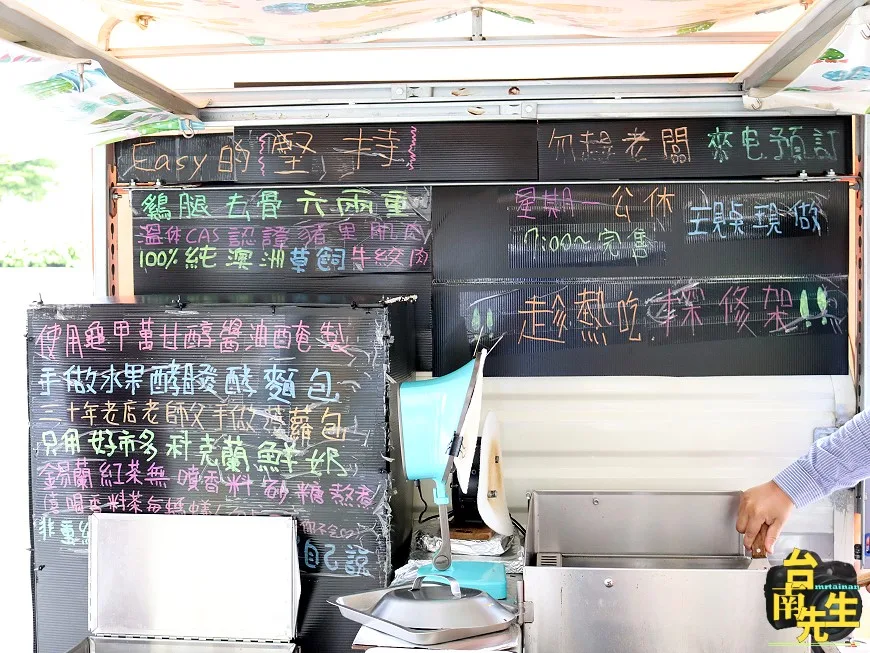 Easy的堅持
勿趕老闆 來电預訂
鷄腿去骨六兩重
溫体CAS認證豬里肌肉
100%純澳洲草飼牛絞肉
星期一公休
7:00~完售
現做
!! 趁熱吃 揪修架 !!
使用龜甲萬甘醇醬油醃製
手做水果酵酸酵麵包
二十年老店老師父手做菠蘿包
只用好市多科克蘭鮮奶
錫蘭紅茶無噴香料砂糖熬煮
自己說
台南先生
mrtainan